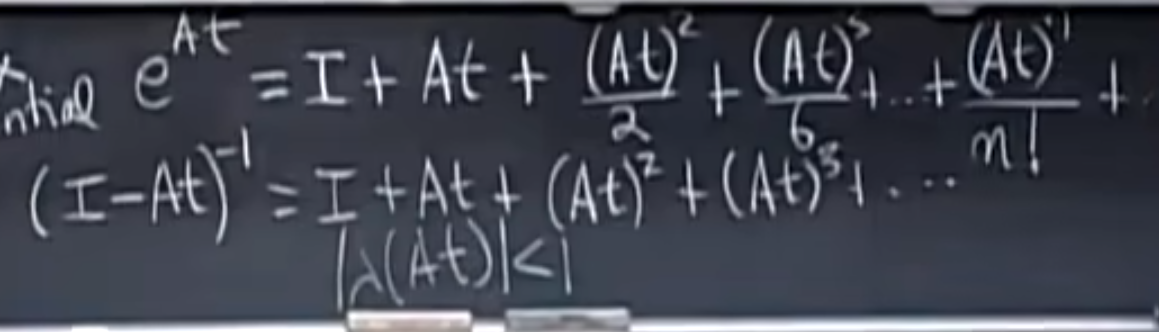 ntial e^{At} = I + At + \frac{(At)^2}{2} + \frac{(At)^3}{6} + .. + \frac{(At)^n}{n!} +
(I-At)^{-1} = I + At + (At)^2 + (At)^3 + ....
|λ(At)|<1